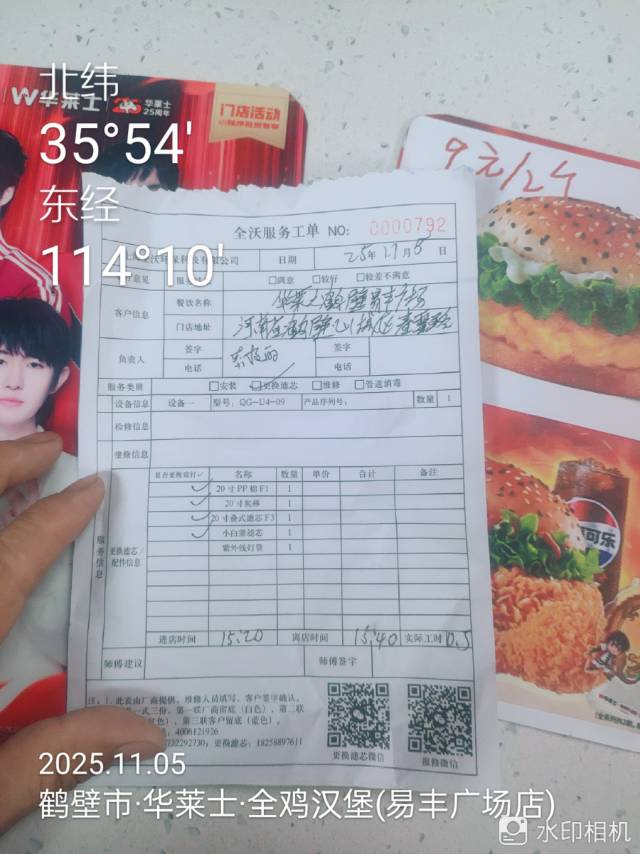 北纬
35°54'
东经
114°10'
W华莱士 25 华莱士
25周年
门店活动
9元/2个
全沃服务工单 NO: 0000792
有限公司 日期 25年11月5日
服务 意见 □满意 □较好 □较差不满意
客户信息 餐饮名称 华莱士鹤壁易丰广场
门店地址 河南省鹤壁
负责人 签字 签字
电话 电话
服务类别 □安装 □更换滤芯 □维修 □管道消毒
设备信息 设备一 型号: QG-U4-09 产品序列号: 数量 1
检修信息
维修信息
是否更换请打✓ 名称 数量 单价 合计 备注
✓ 20寸PP棉F1 1
✓ 20寸炭棒 1
✓ 20寸叠式滤芯F3 1
✓ 小白滑滤芯 1
紫外线灯管 1
服务信息
更换滤芯/
配件信息
进店时间 15:20 离店时间 15:40 实际工时 0.5
师傅建议 师傅签字
注: 1. 此表由厂商提供、维修人员填写、客户签字确认。
一式三份、第一联厂商留底(白色)、第二联
(红色)、第三联客户留底(蓝色)。
电话: 4006121926
更换滤芯: 18258897611
更换滤芯微信 报修微信
可乐
2025.11.05
鹤壁市·华莱士·全鸡汉堡(易丰广场店)
水印相机